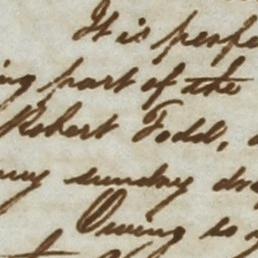 It is perfe
ing part of the
Robert Todd,
sunday
Owing to